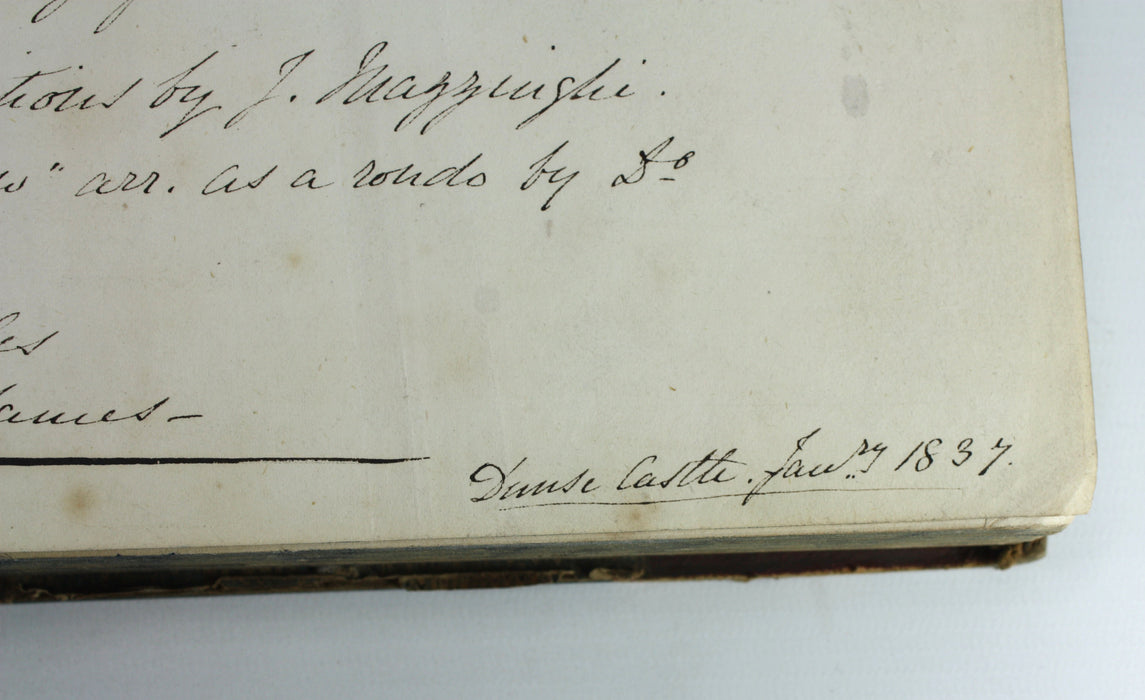 tions by J. Mazzinghi.
w" arr. as a rondo by Do
les
James —
Dunse Castle. Janry 1837.